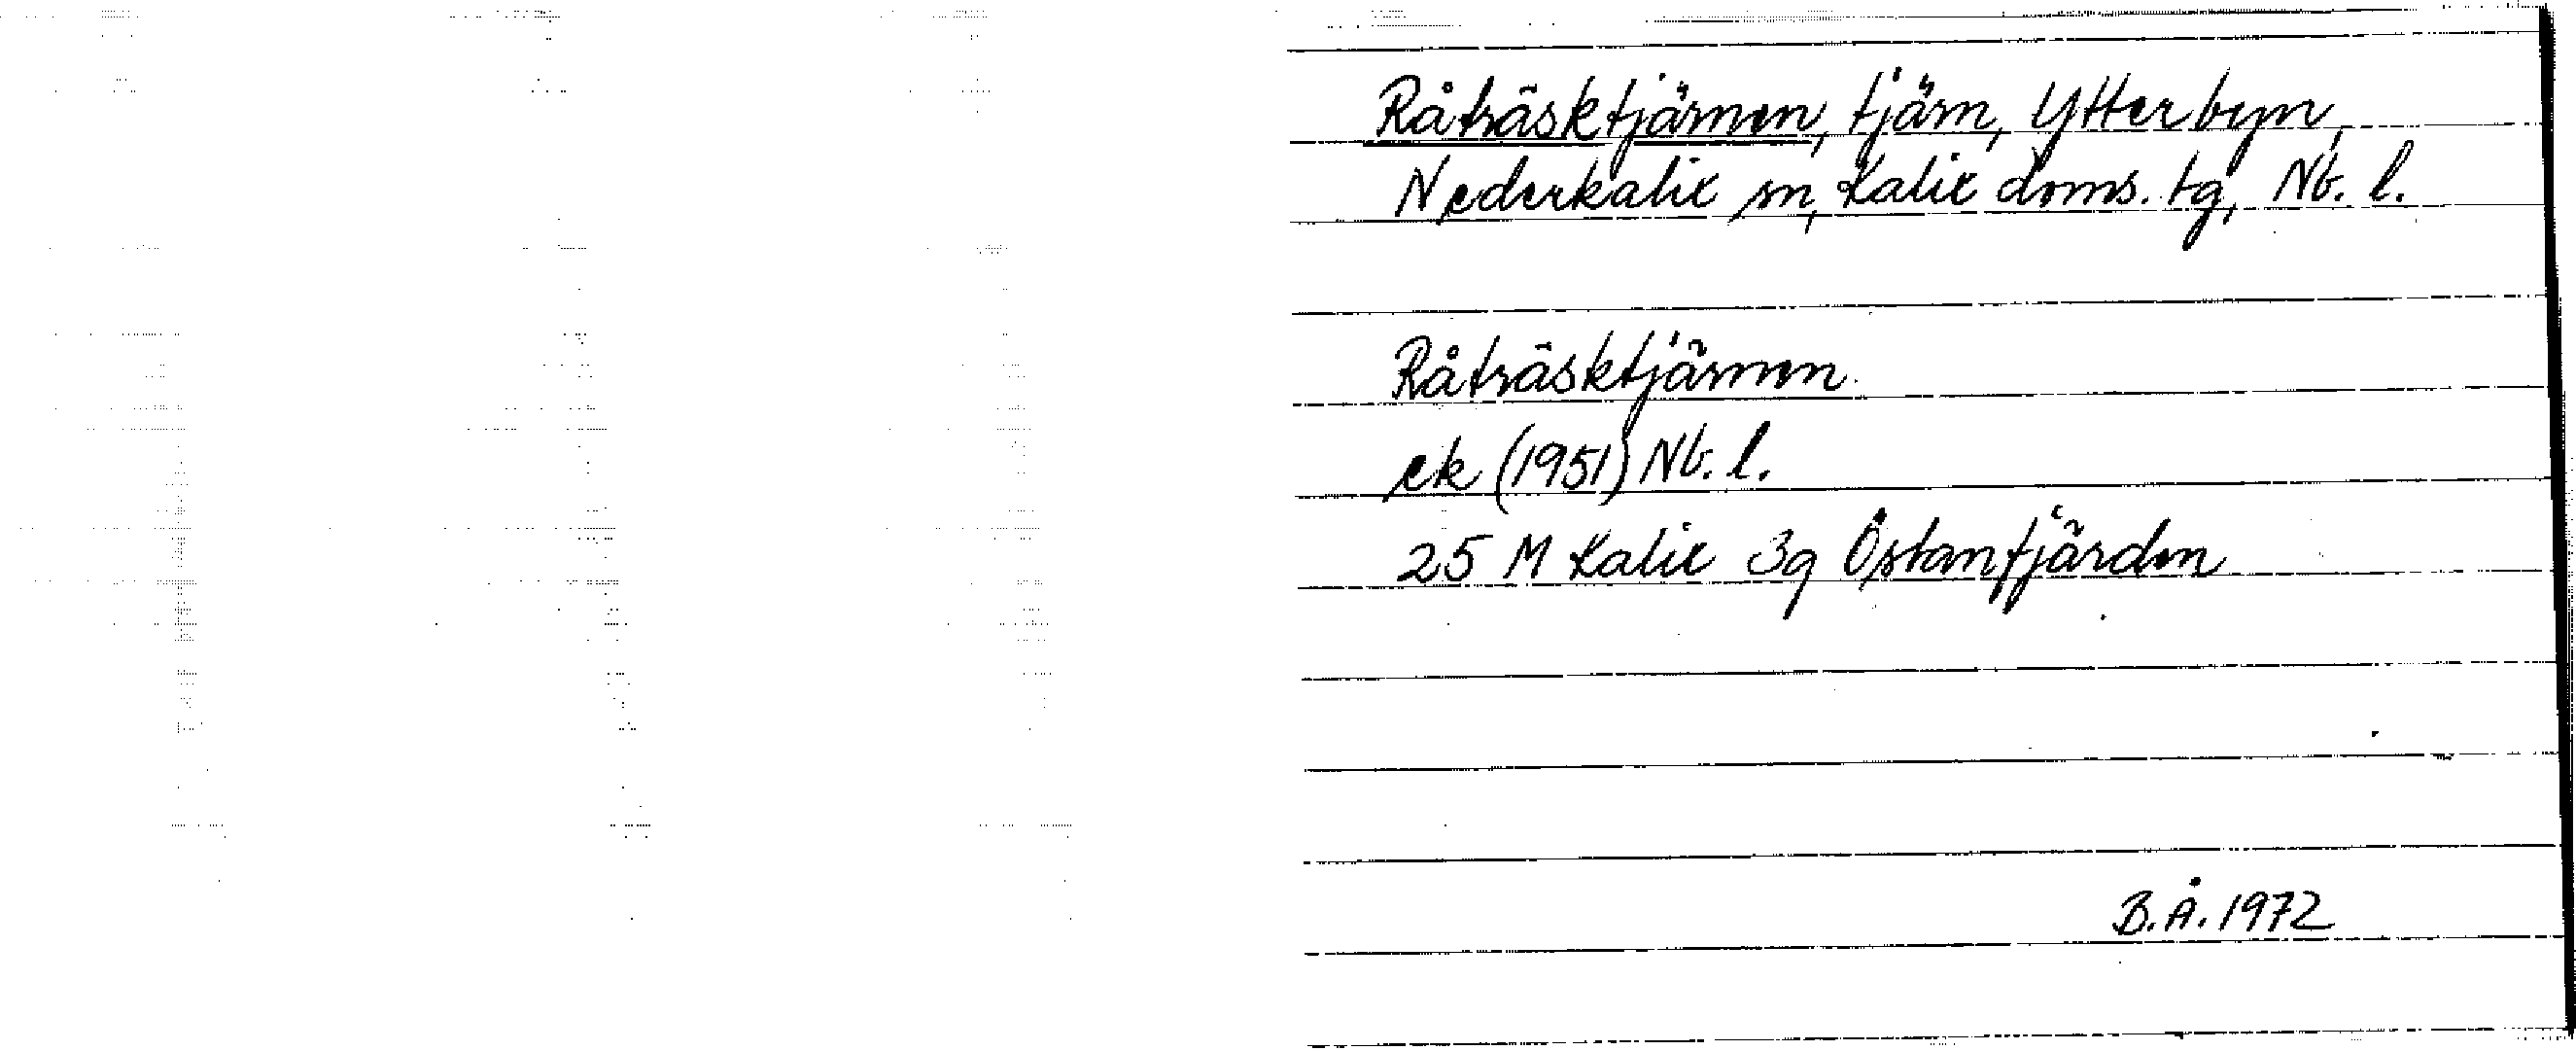 Råträsktjärnen, tjärn, Ytterbyn,
Nederkalix sn, Kalix doms. tg, Nb. l.
Råträsktjärnen
ek (1951) Nb. l.
25 M Kalix 3g Östanfjärden
B.Å. 1972